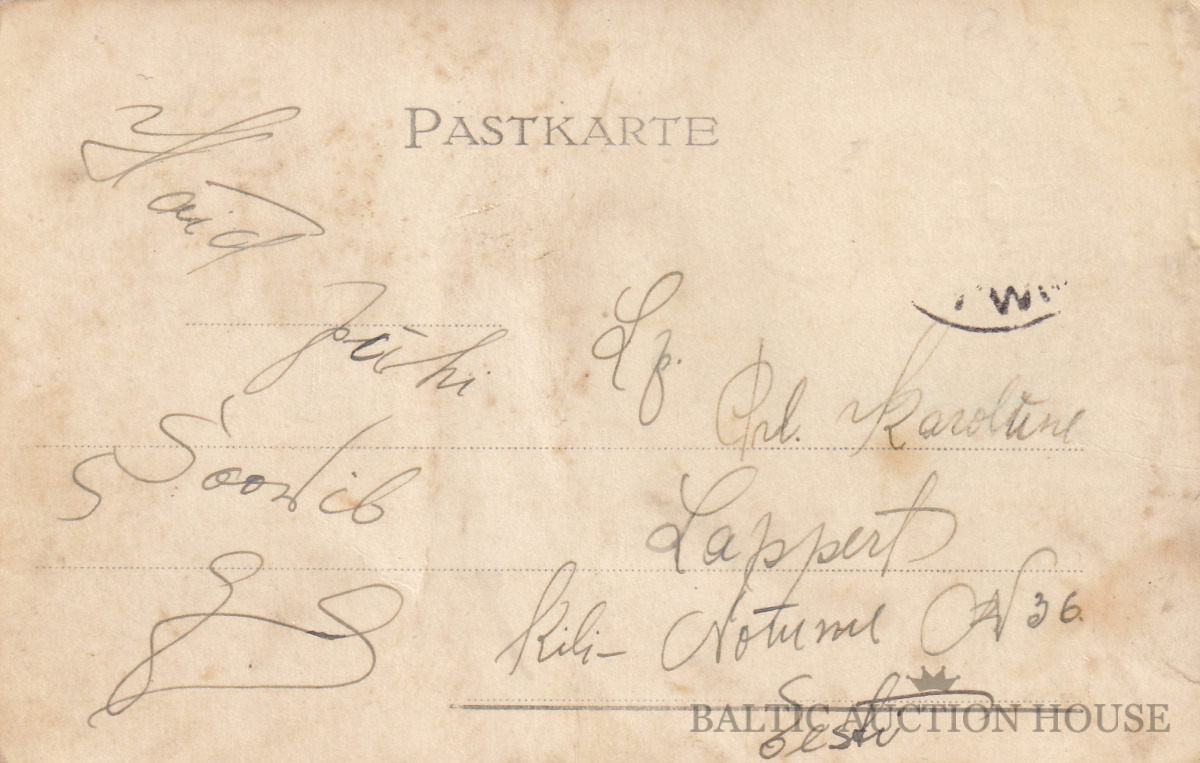 PASTKARTE
Häid
pühi
Soovib
Lp.
Prl. Karoline
Lappert
Kili-Nõmme N 36.
Eesti
BALTIC AUCTION HOUSE